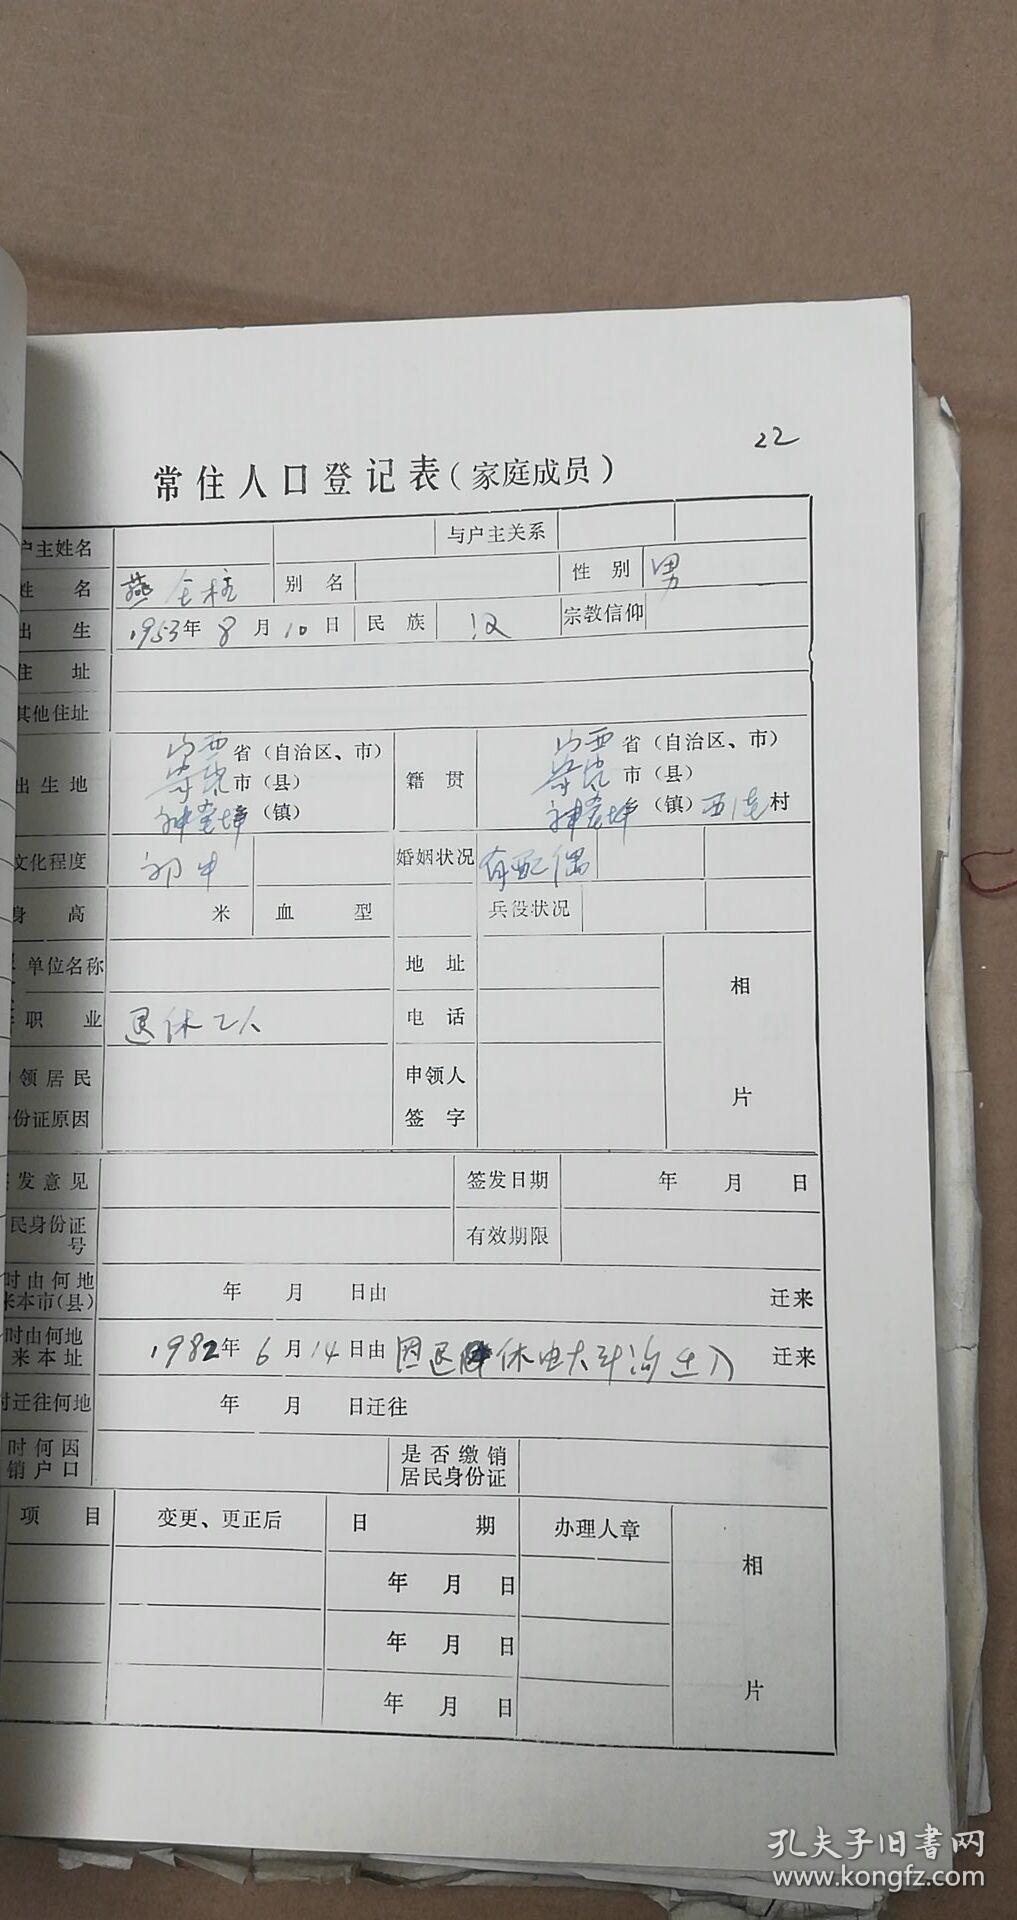 22
常住人口登记表（家庭成员）
户主姓名 与户主关系
姓 名 燕全柱 别 名 性 别 男
出 生 1953年8月10日 民 族 汉 宗教信仰
住 址
其他住址
出生地 山西省（自治区、市） 籍 贯 山西省（自治区、市）
市（县） 市（县）
神堂坪（镇） 神堂坪（镇）西 村
文化程度 初中 婚姻状况 有配偶
身 高 米 血 型 兵役状况
单位名称 地 址 相
职 业 退休工人 电 话
领居民 申领人 片
份证原因 签 字
发意见 签发日期 年 月 日
民身份证
号 有效期限
时由何地
来本市(县) 年 月 日由 迁来
时由何地
来本址 1982年6月14日由 因退休由大斗沟迁入 迁来
时迁往何地 年 月 日迁往
时何因 是否缴销
销户口 居民身份证
项 目 变更、更正后 日 期 办理人章 相
年 月 日
年 月 日
年 月 日 片
孔夫子旧书网
www.kongfz.com